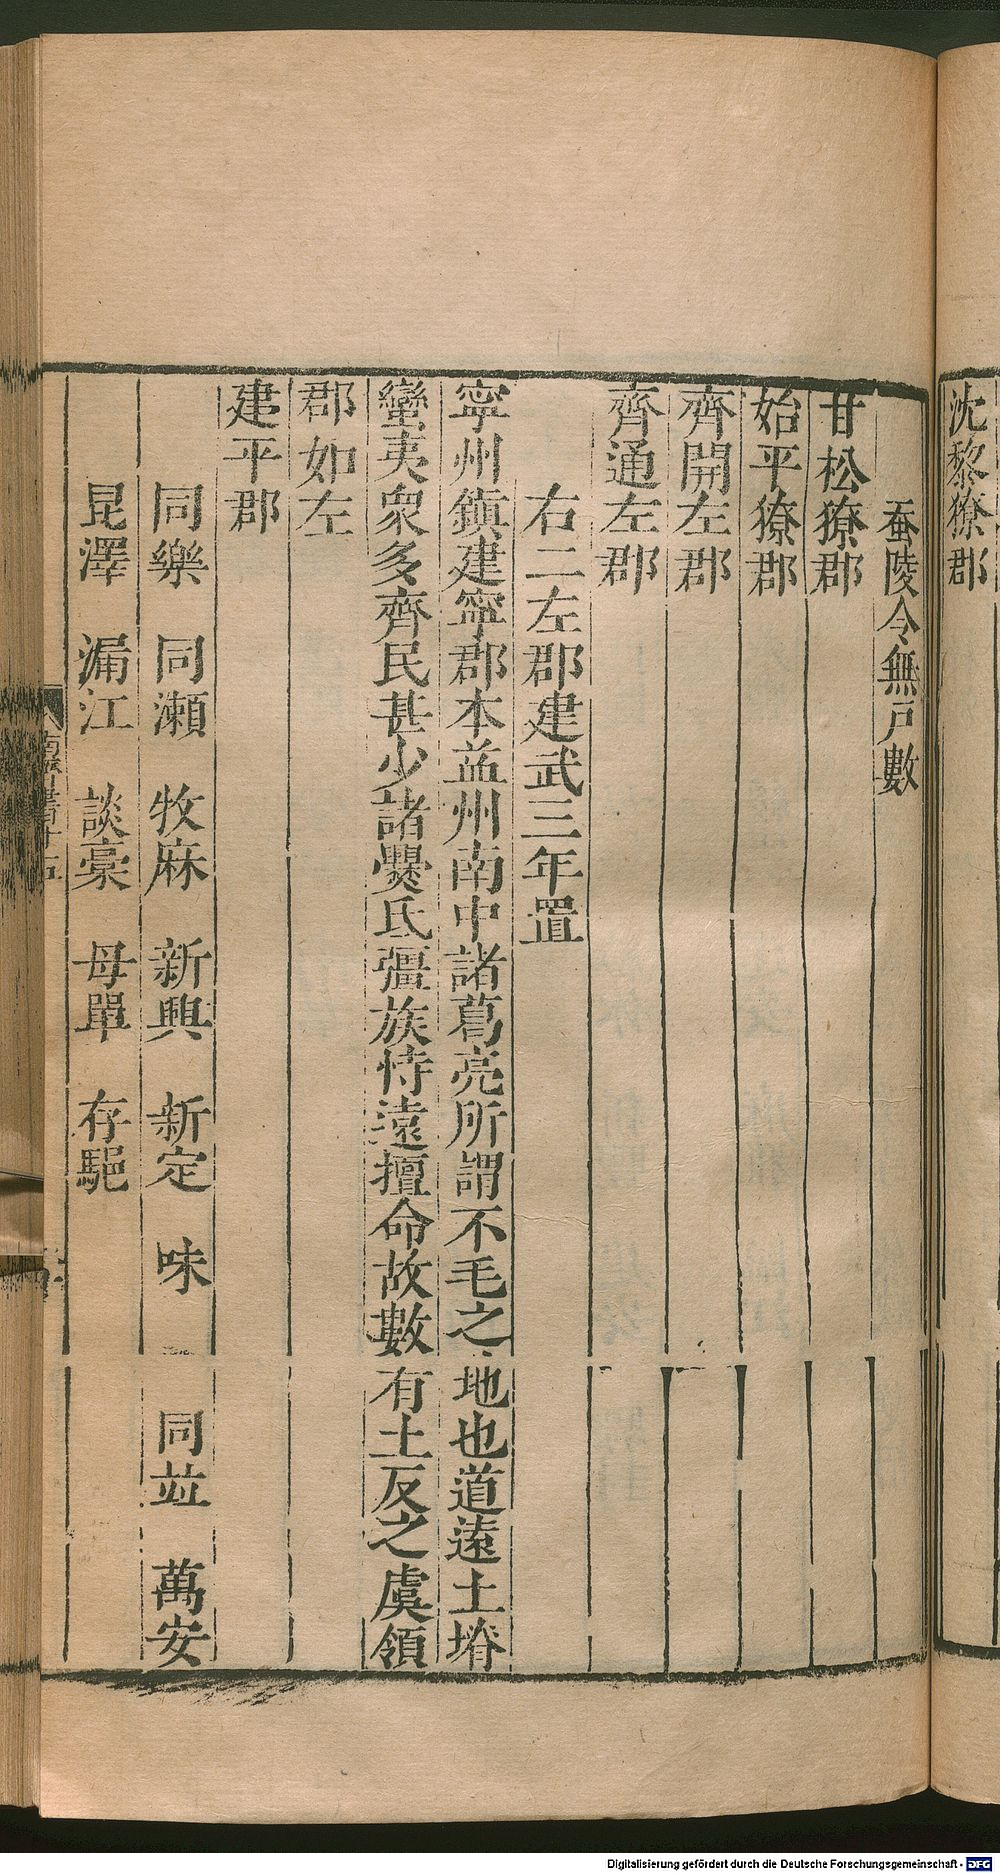 沈黎獠郡
蚕陵令無戶數
甘松獠郡
始平獠郡
齊開左郡
齊通左郡
右二左郡建武三年置
寧州鎮建寧郡本益州南中諸葛亮所謂不毛之地也道遠土塉
蠻夷衆多齊民甚少諸爨氏彊族恃遠擅命故數有土反之虞領
郡如左
建平郡
同樂 同瀨 牧麻 新興 新定 味 同並 萬安
昆澤 漏江 談槀 母單 存䣕
Digitalisierung gefördert durch die Deutsche Forschungsgemeinschaft - DFG